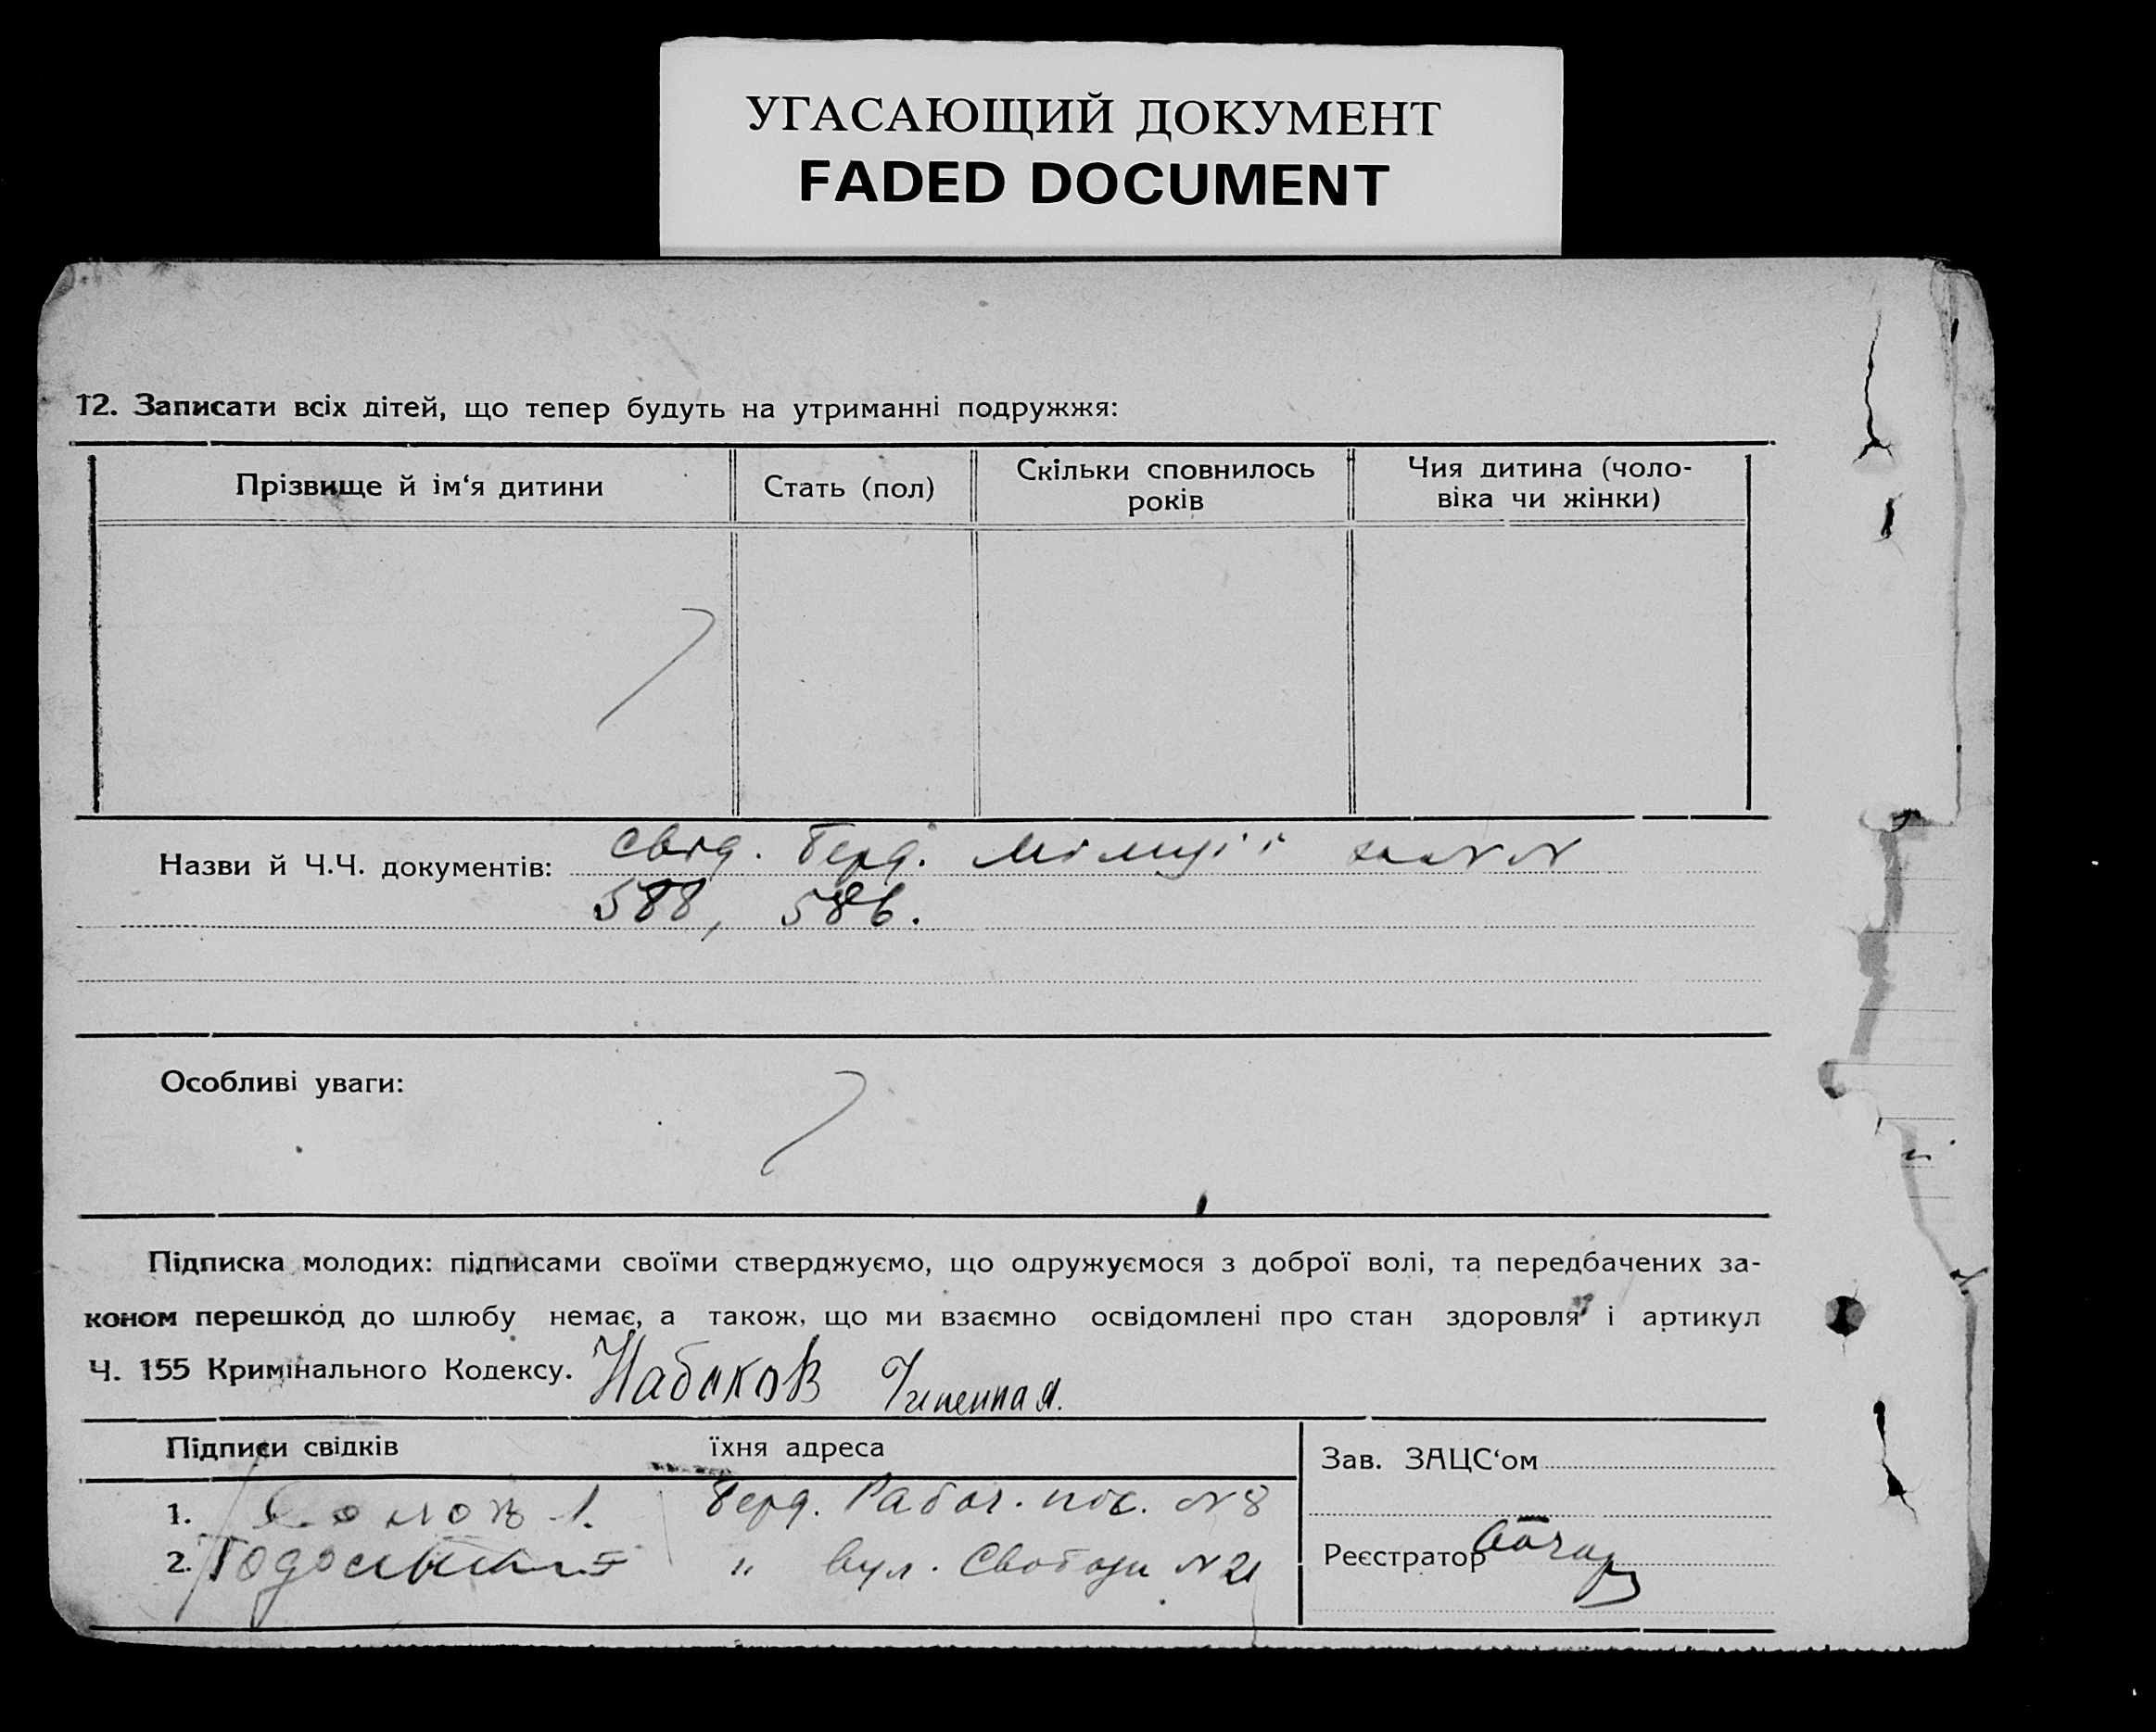 УГАСАЮЩИЙ ДОКУМЕНТ
FADED DOCUMENT
12. Записати всіх дітей, що тепер будуть на утриманні подружжя:
Прізвище й ім‘я дитини
Стать (пол)
Скільки сповнилось
років
Чия дитина (чоло-
віка чи жінки)
Назви й Ч.Ч. документів: свід. Берд. Міліції за NN
588, 586.
Особливі уваги:
Підписка молодих: підписами своїми стверджуємо, що одружуємося з доброї волі, та передбачених за-
коном перешкод до шлюбу немає, а також, що ми взаємно освідомлені про стан здоровля і артикул
Ч. 155 Кримінального Кодексу. Набоков
Підписи свідків
їхня адреса
1. Берд. Рабоч. пос. N 8
2. " вул. Свободи N 21
Зав. ЗАЦС‘ом
Реєстратор